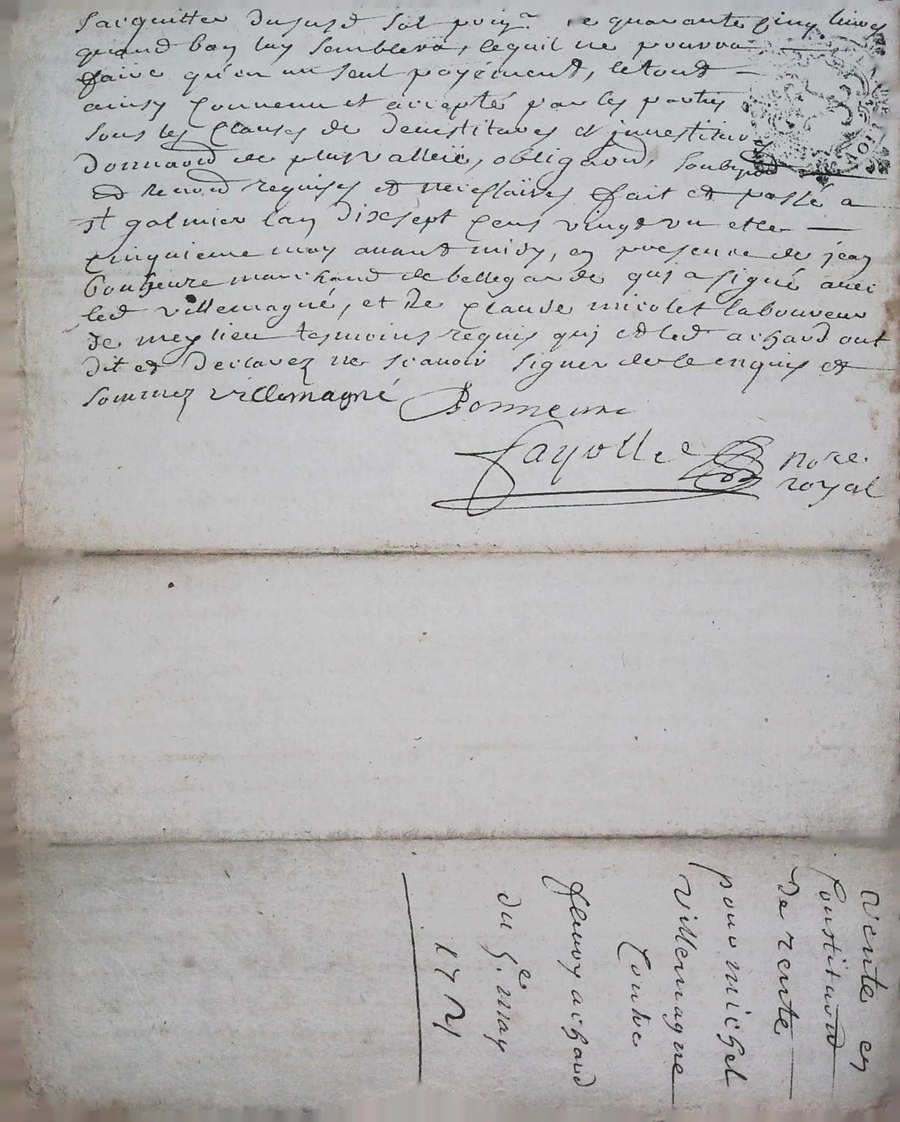 sacquitter dususd sol prin.ª de quarante cinq livres
quand bon luy semblera, lequil ne pourra
faire qu'en un seul payément, le tout
ainsy convenu et accepté par les parties
sous les clauses de
donnaōn de plus valleüe, obligaōn, soubz
et renonōn requises et necessaires fait et passé a
st galmier lan dix sept cens vingt un et le
cinquieme may avant midy, en presence de jean
bonheure marchand de bellegarde qui a signé avec
led villemagné, et de claude micolet laboureur
de meylieu tesmoins requis qui et led achard ont
dit et declarez ne scavoir signer de ce enquis et
sommez villemagné Bonneure
fayolle no.re
royal
vente en
constituōn
de rente
pour michel
villemagne
contre
fleury achard
du 5.e may
1721